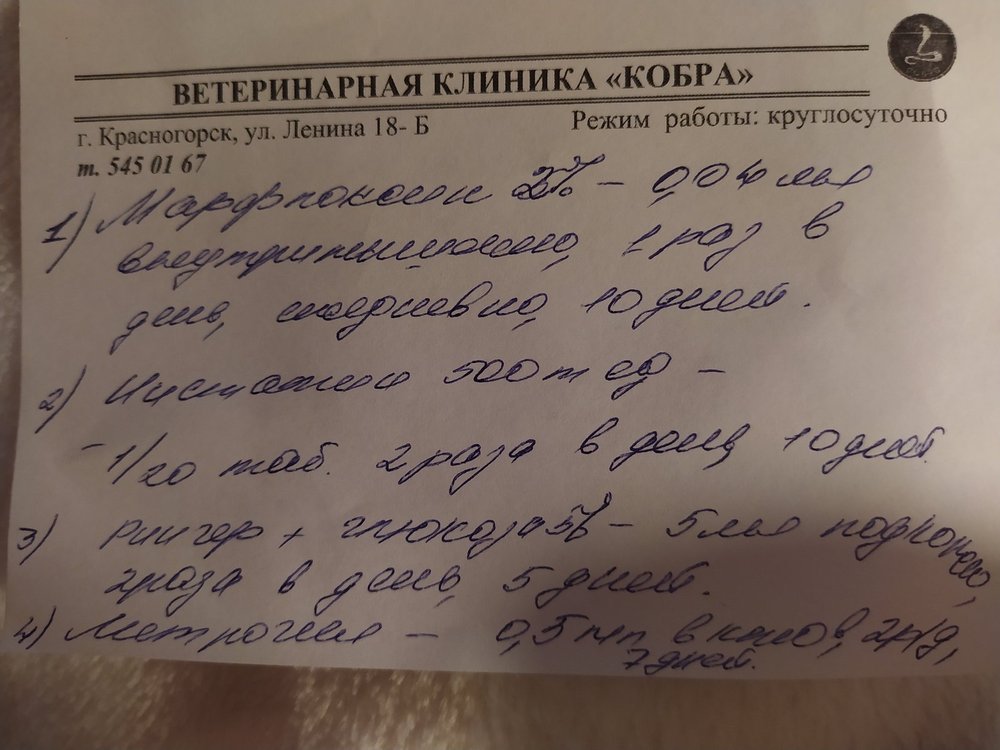 ВЕТЕРИНАРНАЯ КЛИНИКА «КОБРА»
г. Красногорск, ул. Ленина 18- Б Режим работы: круглосуточно
т. 545 01 67
1) Марфлоксин 2% – 0,04 мл
внутримышечно, 1 раз в
день, ежедневно, 10 дней.
2) Нистатин 500 т ед –
– 1/20 таб. 2 раза в день, 10 дней.
3) Рингер + глюкоза 5% – 5 мл подкожно,
2 раза в день, 5 дней.
4) Метрогил – 0,5 мл в клюв, 2р/д,
7 дней.